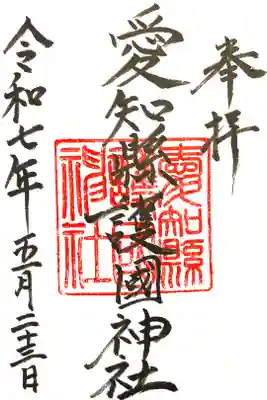 奉拝
愛知縣護國神社
愛知縣
護國
神社
令和七年 五月二十三日